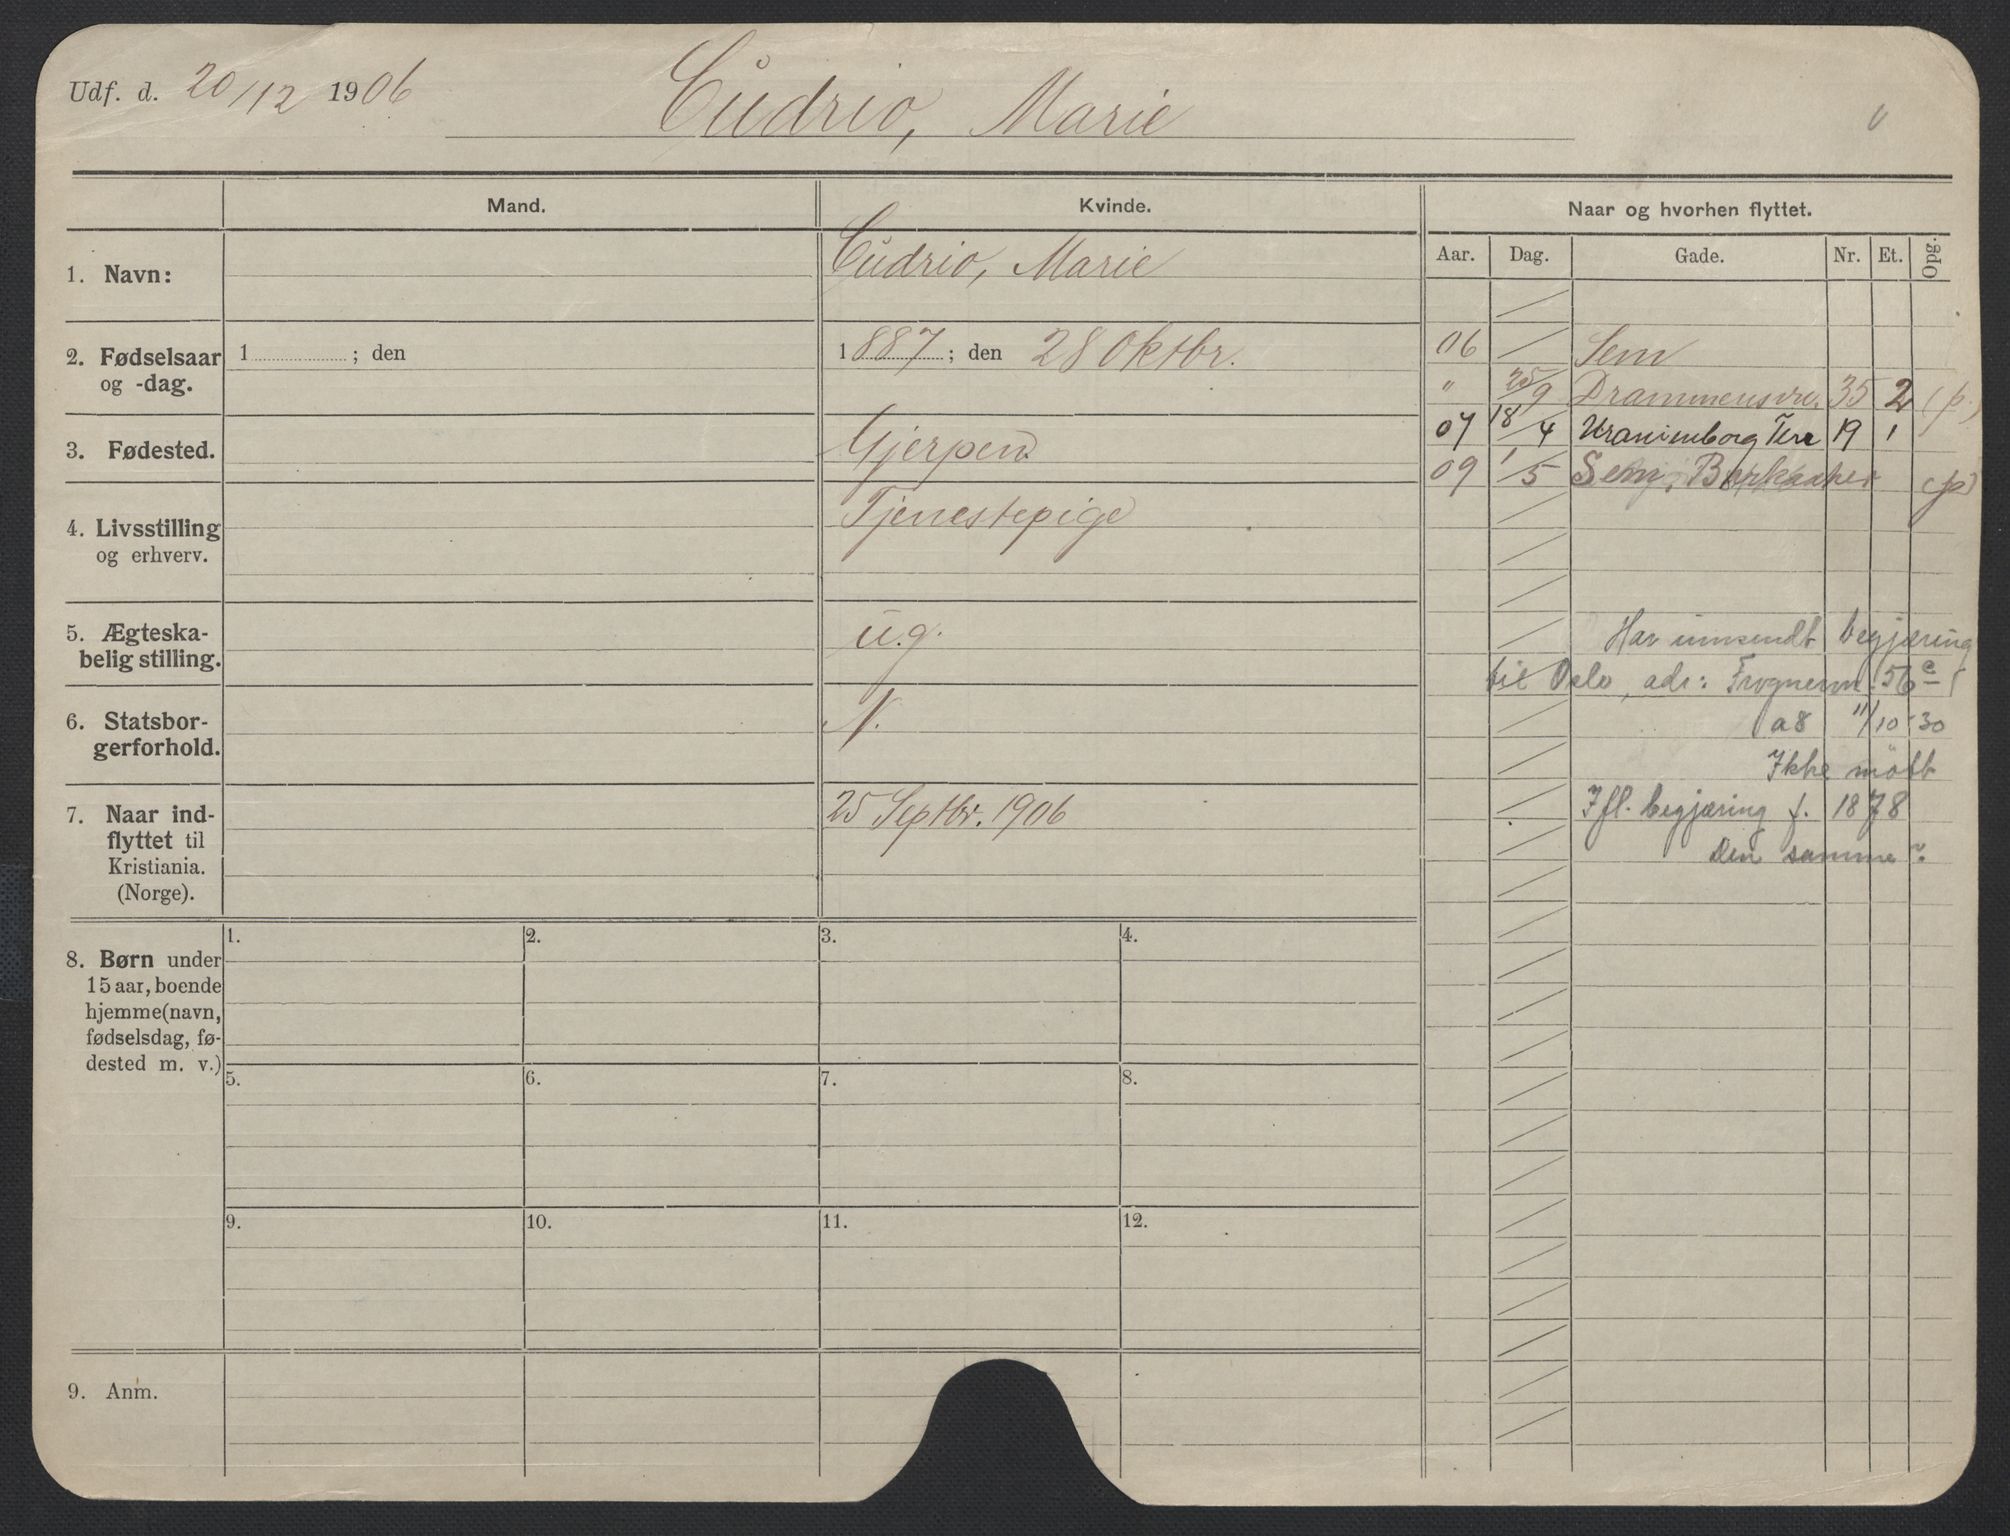 Udf. d. 20/12 1906
Cudrio, Marie
Mand.
Kvinde.
Naar og hvorhen flyttet.
Aar. Dag. Gade. Nr. Et. Opg.
1. Navn: Cudrio, Marie
2. Fødselsaar
og -dag.
1 ; den
1887 ; den 28 Oktbr.
3. Fødested. Gjerpen
4. Livsstilling
og erhverv.
Tjenestepige
5. Ægteska-
belig stilling.
u.g.
6. Statsbor-
gerforhold.
N.
7. Naar ind-
flyttet til
Kristiania.
(Norge).
25 Septbr. 1906
8. Børn under
15 aar, boende
hjemme (navn,
fødselsdag, fø-
dested m. v.)
1. 2. 3. 4.
5. 6. 7. 8.
9. 10. 11. 12.
9. Anm.
06 Sem
" 25/9 Drammensvn. 35 2 (p.)
07 18/4 Uranienborg Terr 19 1
09 1/5 Sem, Barkaaker (p)
Har innsendt begjæring
til Oslo, adr: Frognervn. 56 c
a8 11/10-30
Ikke møtt
Ifl. begjæring f. 1878
Den samme?